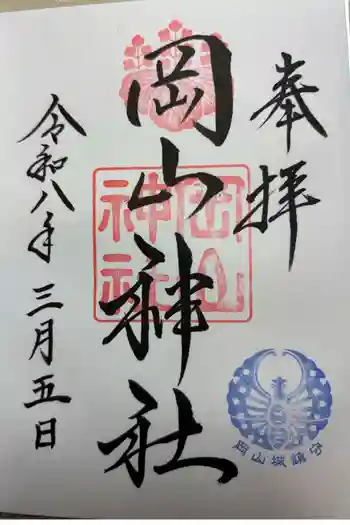 奉拝
岡山神社
岡山
神社
岡山城鎮守
令和八年三月五日